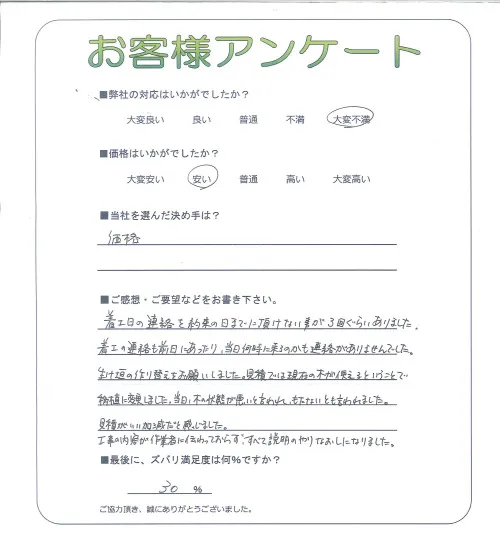 お客様アンケート
■弊社の対応はいかがでしたか？
大変良い 良い 普通 不満 大変不満
■価格はいかがでしたか？
大変安い 安い 普通 高い 大変高い
■当社を選んだ決め手は？
価格
■ご感想・ご要望などをお書き下さい。
着工日の連絡を約束の日までに頂けない事が3回ぐらいありました。
着工の連絡も前日にあったり、当日何時に来るのかも連絡がありませんでした。
生け垣の作り替えをお願いしました。見積では現在の木が使えるということで
しました。当日、木の状態が悪いと言われ、もたないとも言われました。
見積がいい加減だと感じました。
工事の内容が作業者に伝わっておらず、すべて説明のやりなおしになりました。
■最後に、ズバリ満足度は何％ですか？
30 ％
ご協力頂き、誠にありがとうございました。